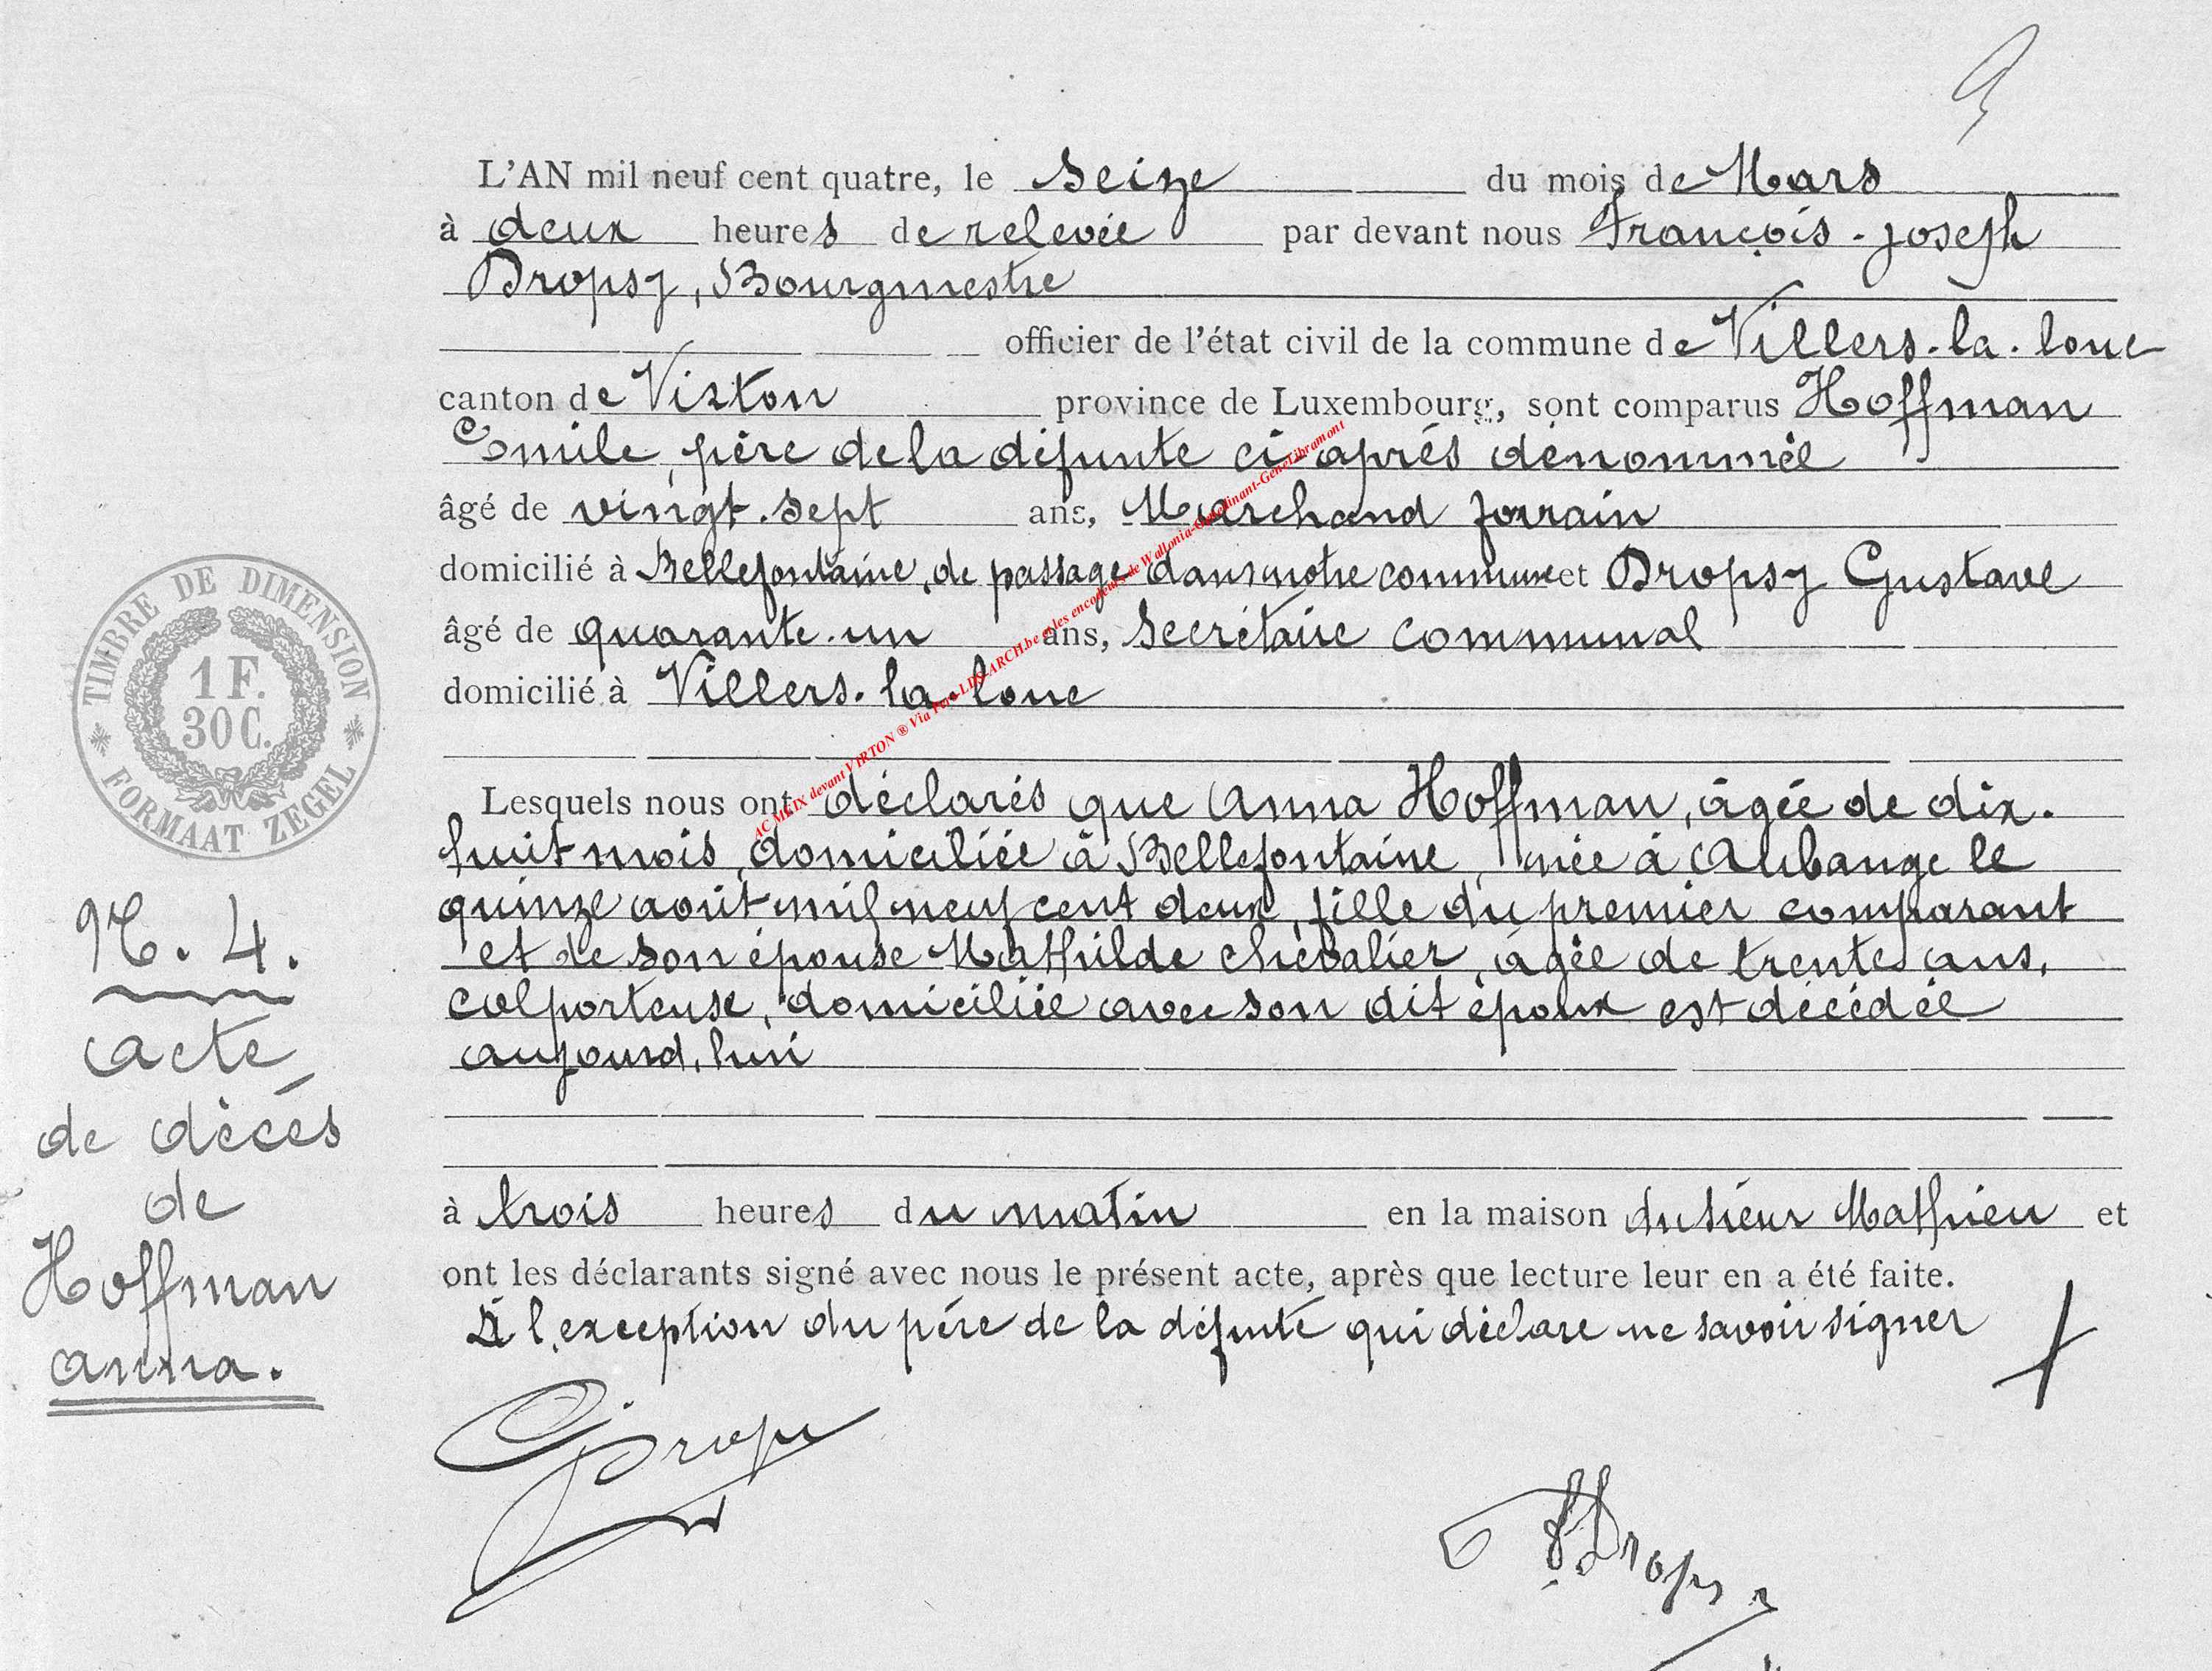 9
L'AN mil neuf cent quatre, le seize du mois de Mars
à deux heures de relevée par devant nous François-joseph
Dropsy, Bourgmestre
officier de l'état civil de la commune de Villers-la-loue
canton de Virton province de Luxembourg, sont comparus Hoffman
Emile, père de la défunte ci-après dénommée
âgé de vingt-sept ans, Marchand forain
domicilié à Bellefontaine, de passage dans notre commune et Dropsy Gustave
âgé de quarante-un ans, secrétaire communal
domicilié à Villers-la-loue
Lesquels nous ont déclarés que Anna Hoffman, âgée de dix-
huit mois, domiciliée à Bellefontaine, née à Aubange le
quinze août mil neuf cent deux, fille du premier comparant
et de son épouse Mathilde chevalier, âgée de trente ans,
colporteuse, domiciliée avec son dit époux est décédée
aujourd,hui
à trois heures du matin en la maison du sieur Mathieu et
ont les déclarants signé avec nous le présent acte, après que lecture leur en a été faite.
à l,exception du père de la défunte qui déclare ne savoir signer
Dropsy
F Dropsy
TIMBRE DE DIMENSION
1 F.
30 C.
FORMAAT ZEGEL
N. 4.
acte
de décès
de
Hoffman
anna.
AC MEIX devant VIRTON ® Via ARCH.be et les encodeurs de Wallonia-GeneLibramont